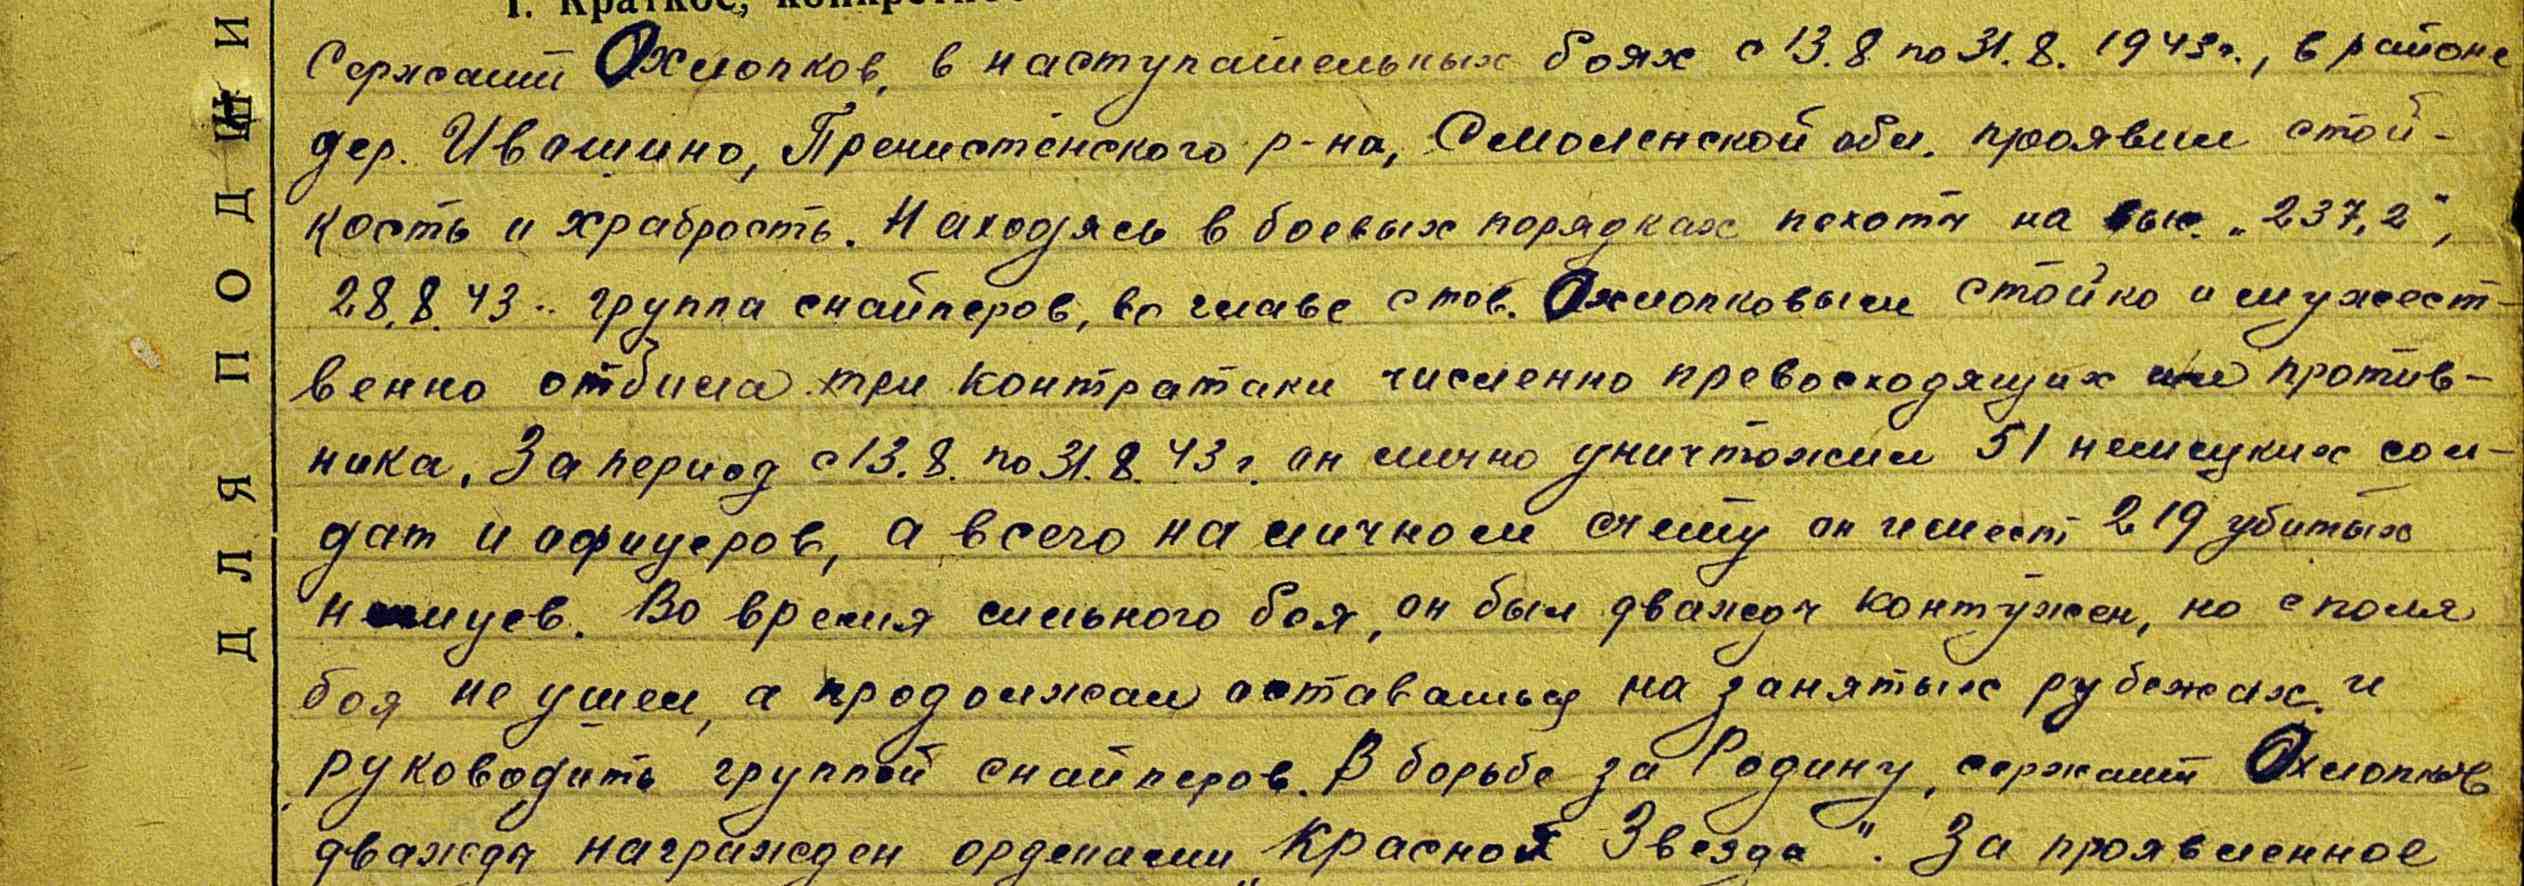 1. Краткое, конкретное
Сержант Охлопков, в наступательных боях с 13.8 по 31.8. 1943г., в районе
дер. Ивашино, Пречистенского р-на, Смоленской обл. проявил стой-
кость и храбрость. Находясь в боевых порядках пехоты на выс. „237,2",
28.8.43.. группа снайперов, во главе с тов. Охлопковым стойко и мужест-
венно отбила три контратаки численно превосходящих или против-
ника. За период с 13.8. по 31.8.43 г. он лично уничтожил 51 немецких сол-
дат и офицеров, а всего на личном счету он имеет 219 убитых
немцев. Во время сильного боя, он был дважды контужен, но с поля
боя не ушел, а продолжал оставаться на занятых рубежах. и
руководить группой снайперов. В борьбе за Родину, сержант Охлопков
дважды награжден орденами „Красной Звезда". За проявленное
ДЛЯ ПОДШИ